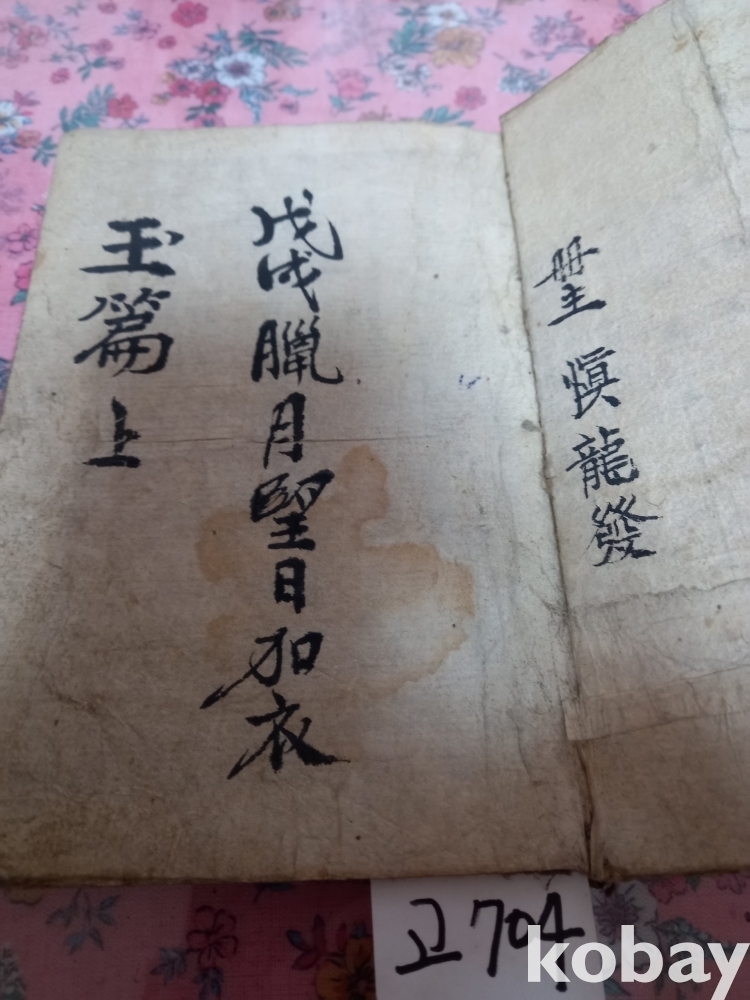 冊主 愼龍發
戊戌臘月望日加衣
玉篇上
고704
kobay